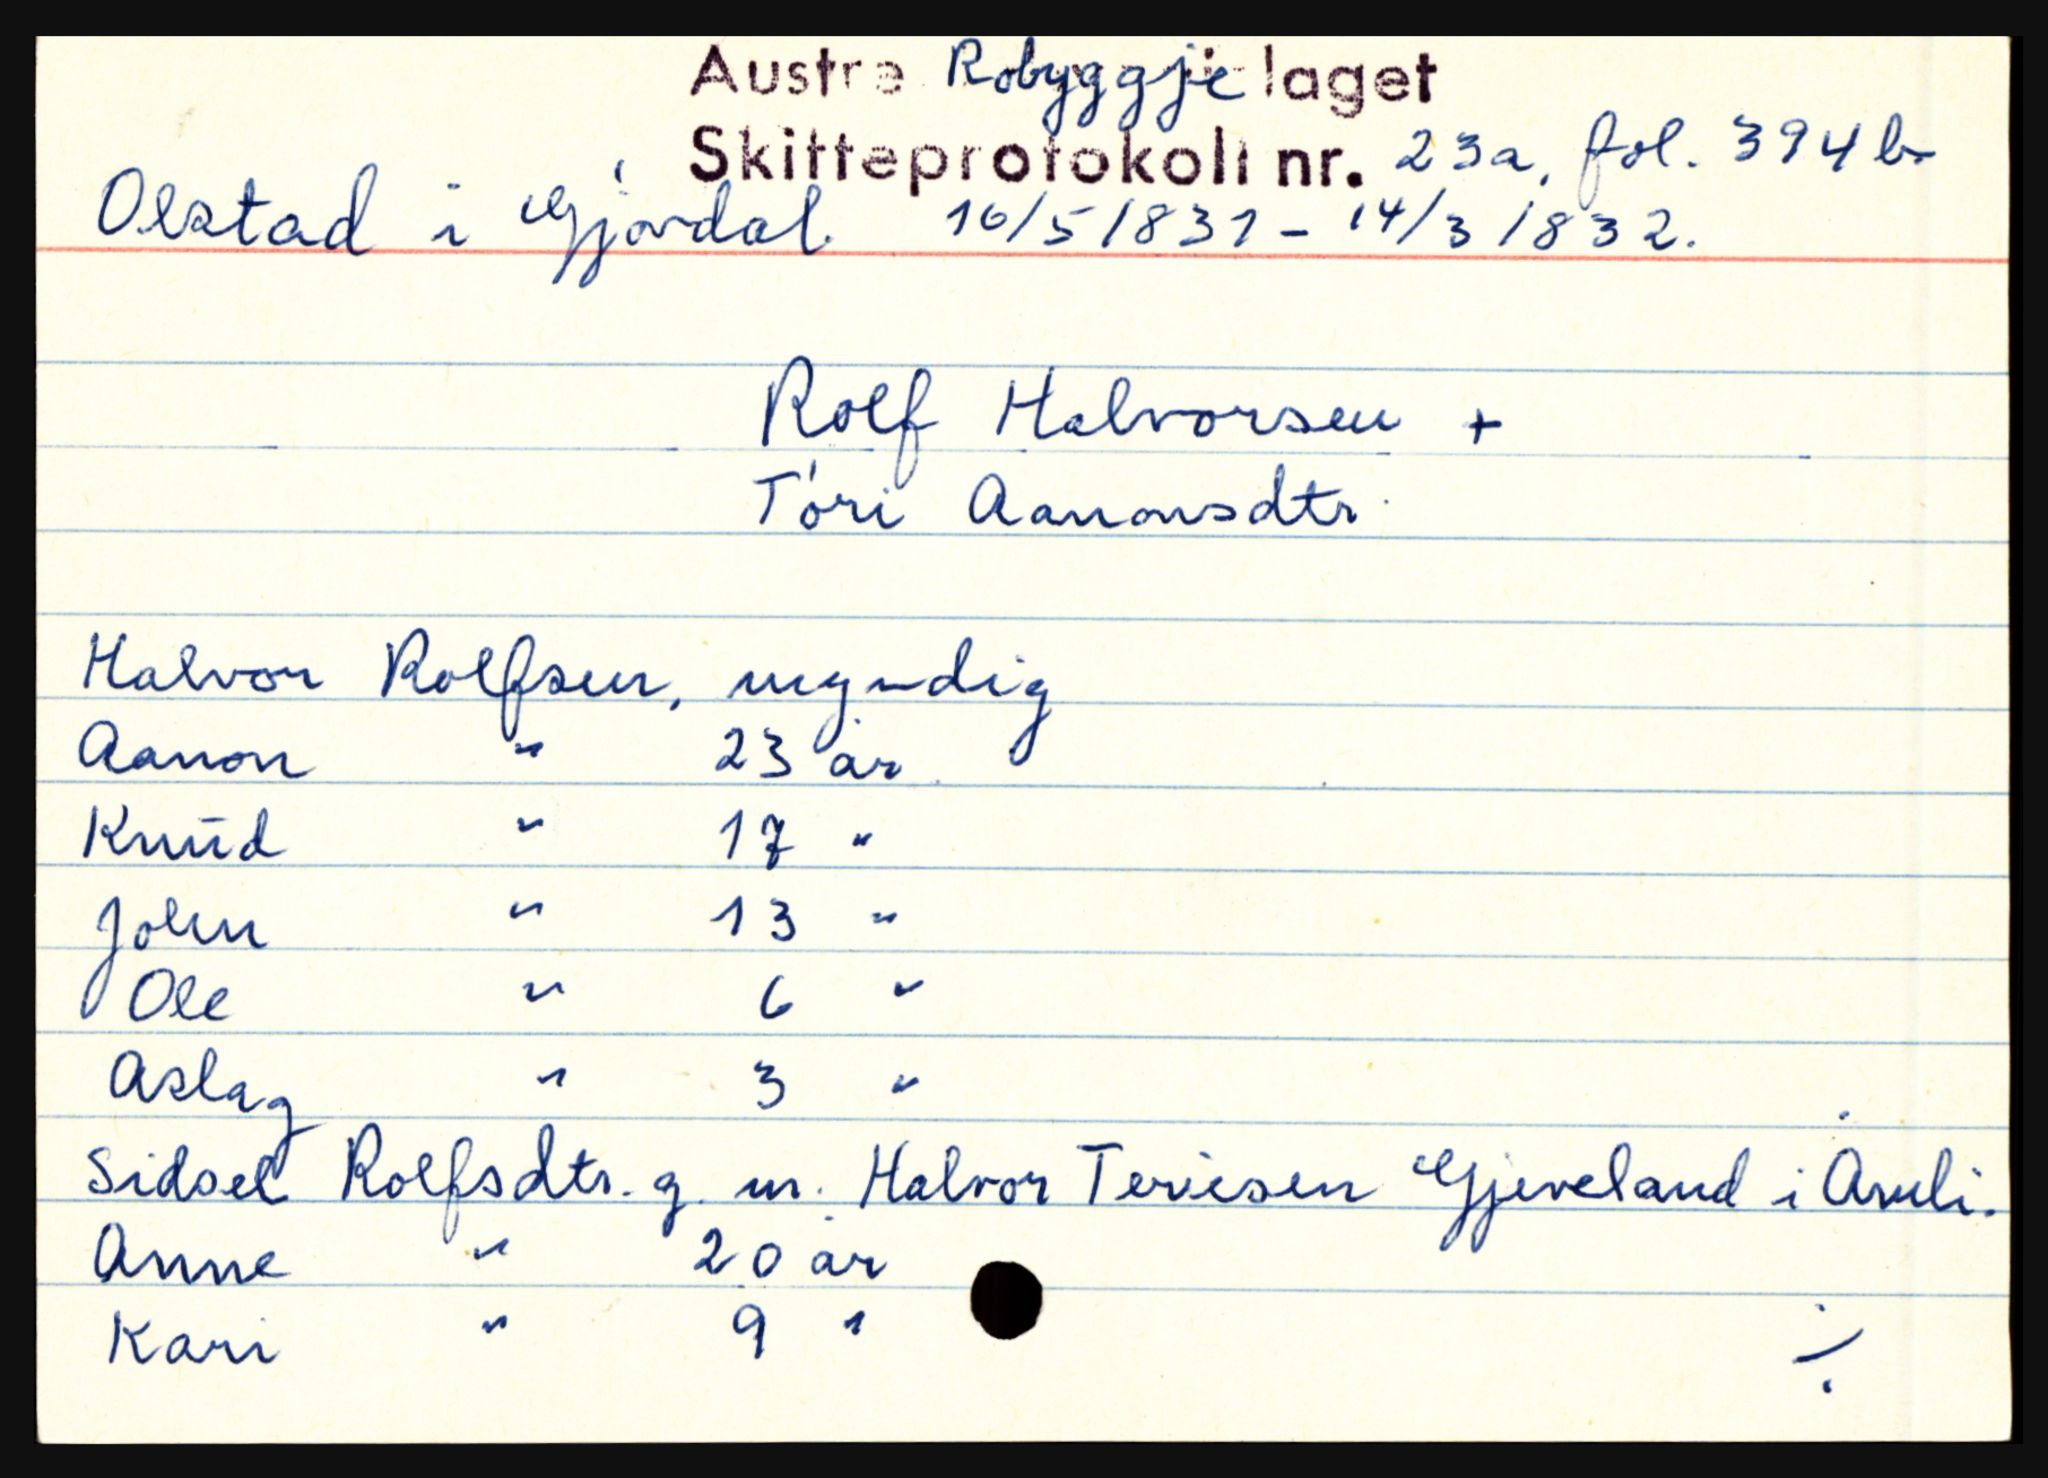 Austre Robyggjelaget
Skifteprotokoll nr. 23a, fol. 394 b.
Olstad i Gjövdal. 16/5 1831 - 14/3 1832.
Rolf Halvorsen +
Tóri Aanonsdtr.
Halvor Rolfsen, myndig
Aanon " 23 år
Knud " 17 "
John " 13 "
Ole " 6 "
Aslag " 3 "
Sidsel Rolfsdtr. g. m. Halvor Teriesen Gjeveland i Åmli.
Anne " 20 år
Kari " 9 "
./.